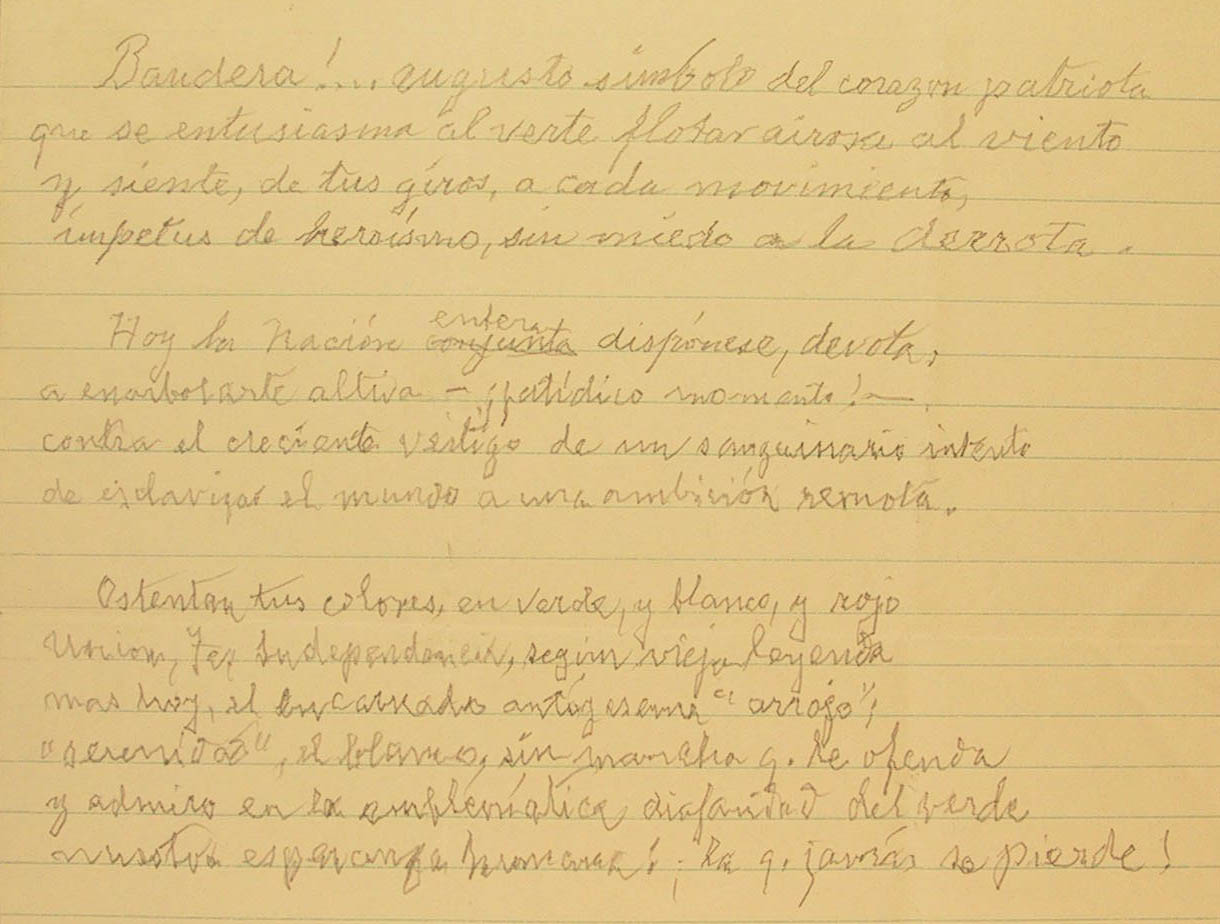 Bandera!... augusto símbolo del corazon patriota
que se entusiasma al verte flotar airosa al viento
y siente, de tus giros, a cada movimiento,
ímpetus de heroísmo, sin miedo a la derrota.
Hoy la Nación entera dispónese, devota,
a enarbolarte altiva – ¡fatídico momento! –
contra el creciente vértigo de un sanguinario intento
de esclavizar el mundo a una ambición remota.
Ostentan tus colores, en verde, y blanco, y rojo
Union, Fe, Independencia, según vieja leyenda
mas hoy, el encarnado antójaseme "arrojo";
"serenidad", el blanco, sin mancha q. le ofenda
y admiro en la emblemática diafanidad del verde
nuestra esperanza humana! ¡la q. jamás se pierde!